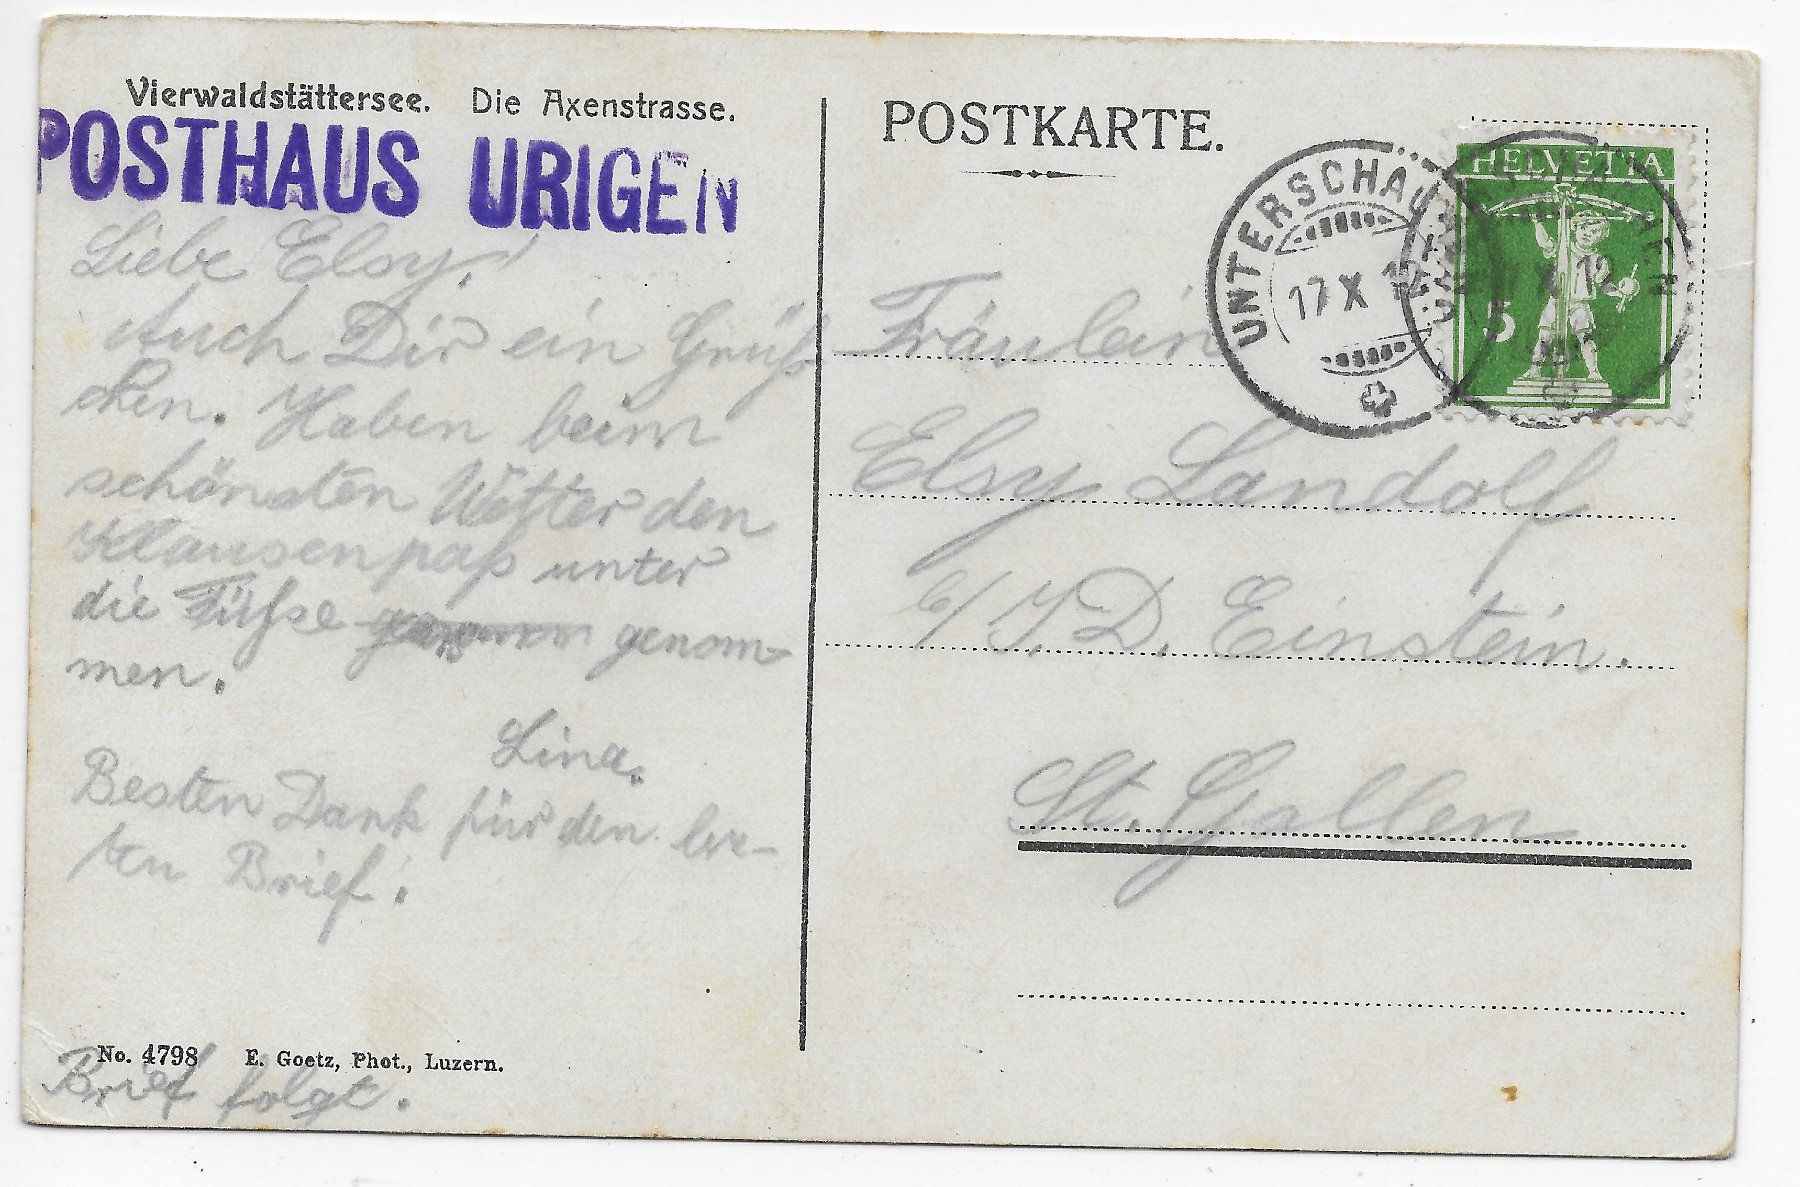 Vierwaldstättersee. Die Axenstrasse.
POSTHAUS URIGEN
Liebe Elsy!
Auch Dir ein Grüß
chen. Haben beim
schönsten Wetter den
Klausenpaß unter
die Füsse genom-
men.
Lina.
Besten Dank für den
ten Brief!
No. 4798 E. Goetz, Phot., Luzern.
Brief folgt.
POSTKARTE.
HELVETIA
5
UNTERSCHÄCHEN
17 X 12
Fräulein
Elsy Landolf
c/ J. D. Einstein.
St. Gallen